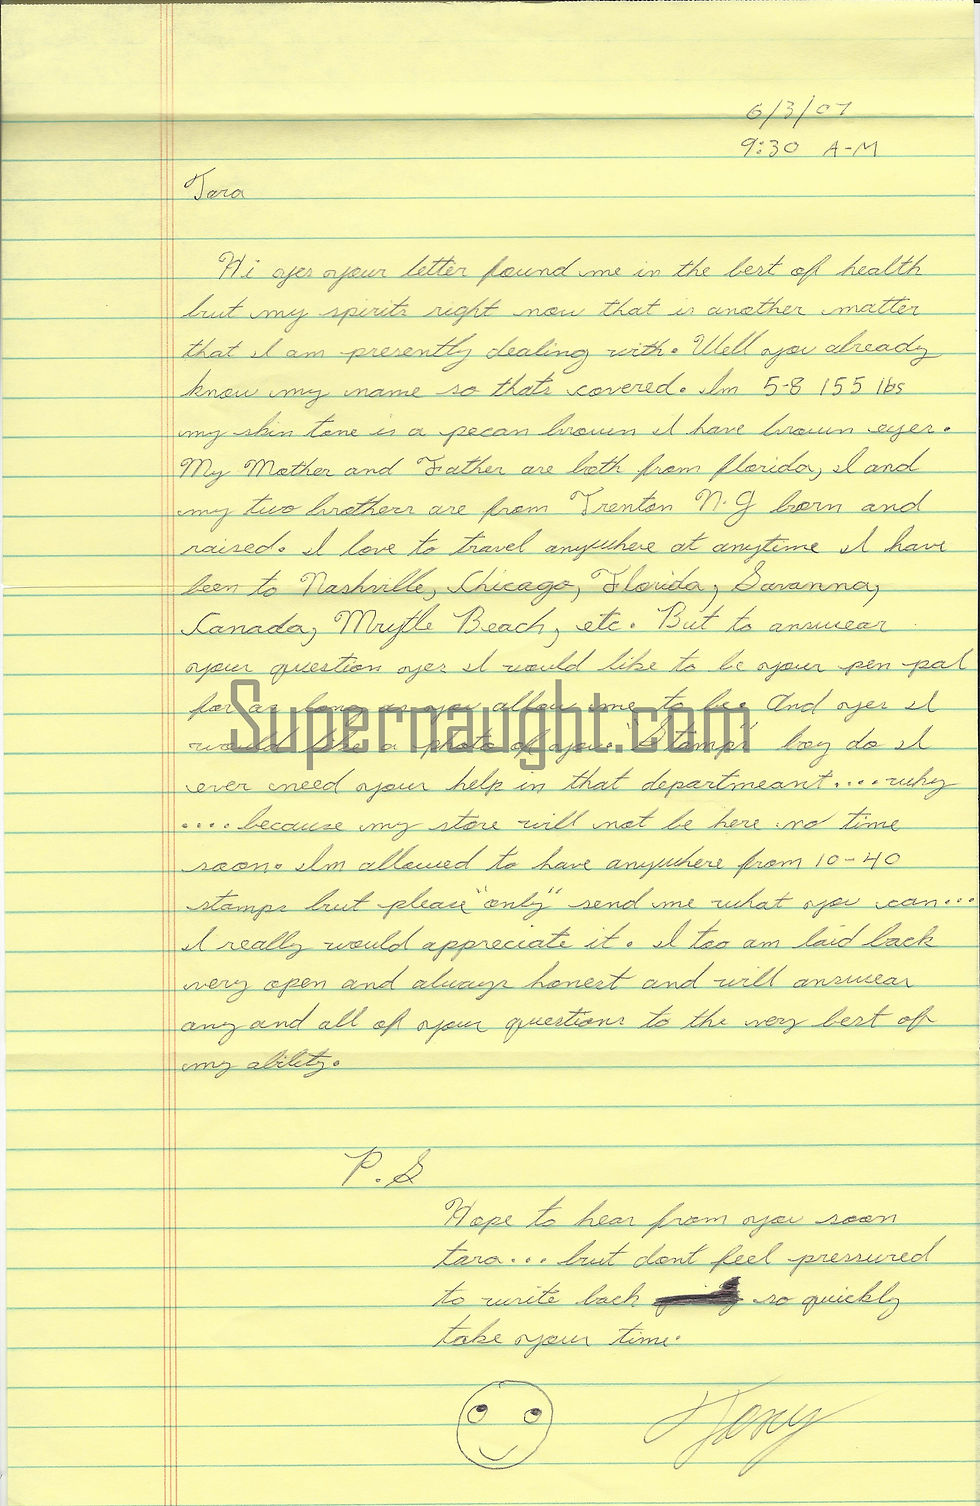 6/3/07
9:30 A-M
Tara
Hi yes your letter found me in the best of health
but my spirits right now that is another matter
that I am presently dealing with. Well you already
know my name so thats covered. Im 5-8 155 lbs
my skin tone is a pecan brown I have brown eyes.
My Mother and Father are both from florida, I and
my two brothers are from Trenton N.J born and
raised. I love to travel anywhere at anytime I have
been to Nashville, Chicago, Florida, Savanna,
Canada, Mrytle Beach, etc. But to answear
your question yes I would like to be your pen pal
for as long as you allow me to be. And yes I
would like a photo of you. "Stamps" boy do I
Supernaught.com
ever need your help in that departmeant....why
....because my store will not be here no time
soon. Im allowed to have anywhere from 10-40
stamps but please "only" send me what you can...
I really would appreciate it. I too am laid back
very open and always honest and will answear
any and all of your questions to the very best of
my ability.
P.S
Hope to hear from you soon
tara... but dont feel pressured
to write back so quickly
take your time.
Tony